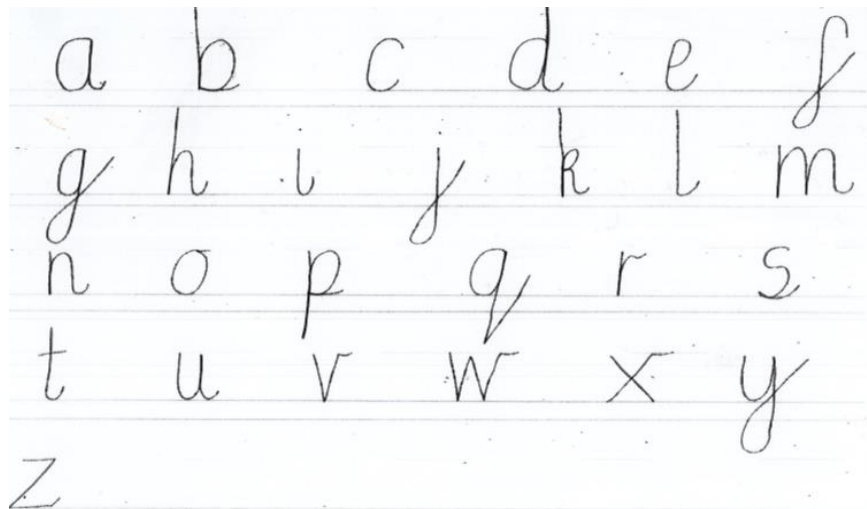 a b c d e f
g h i j k l m
n o p q r s
t u v w x y
z